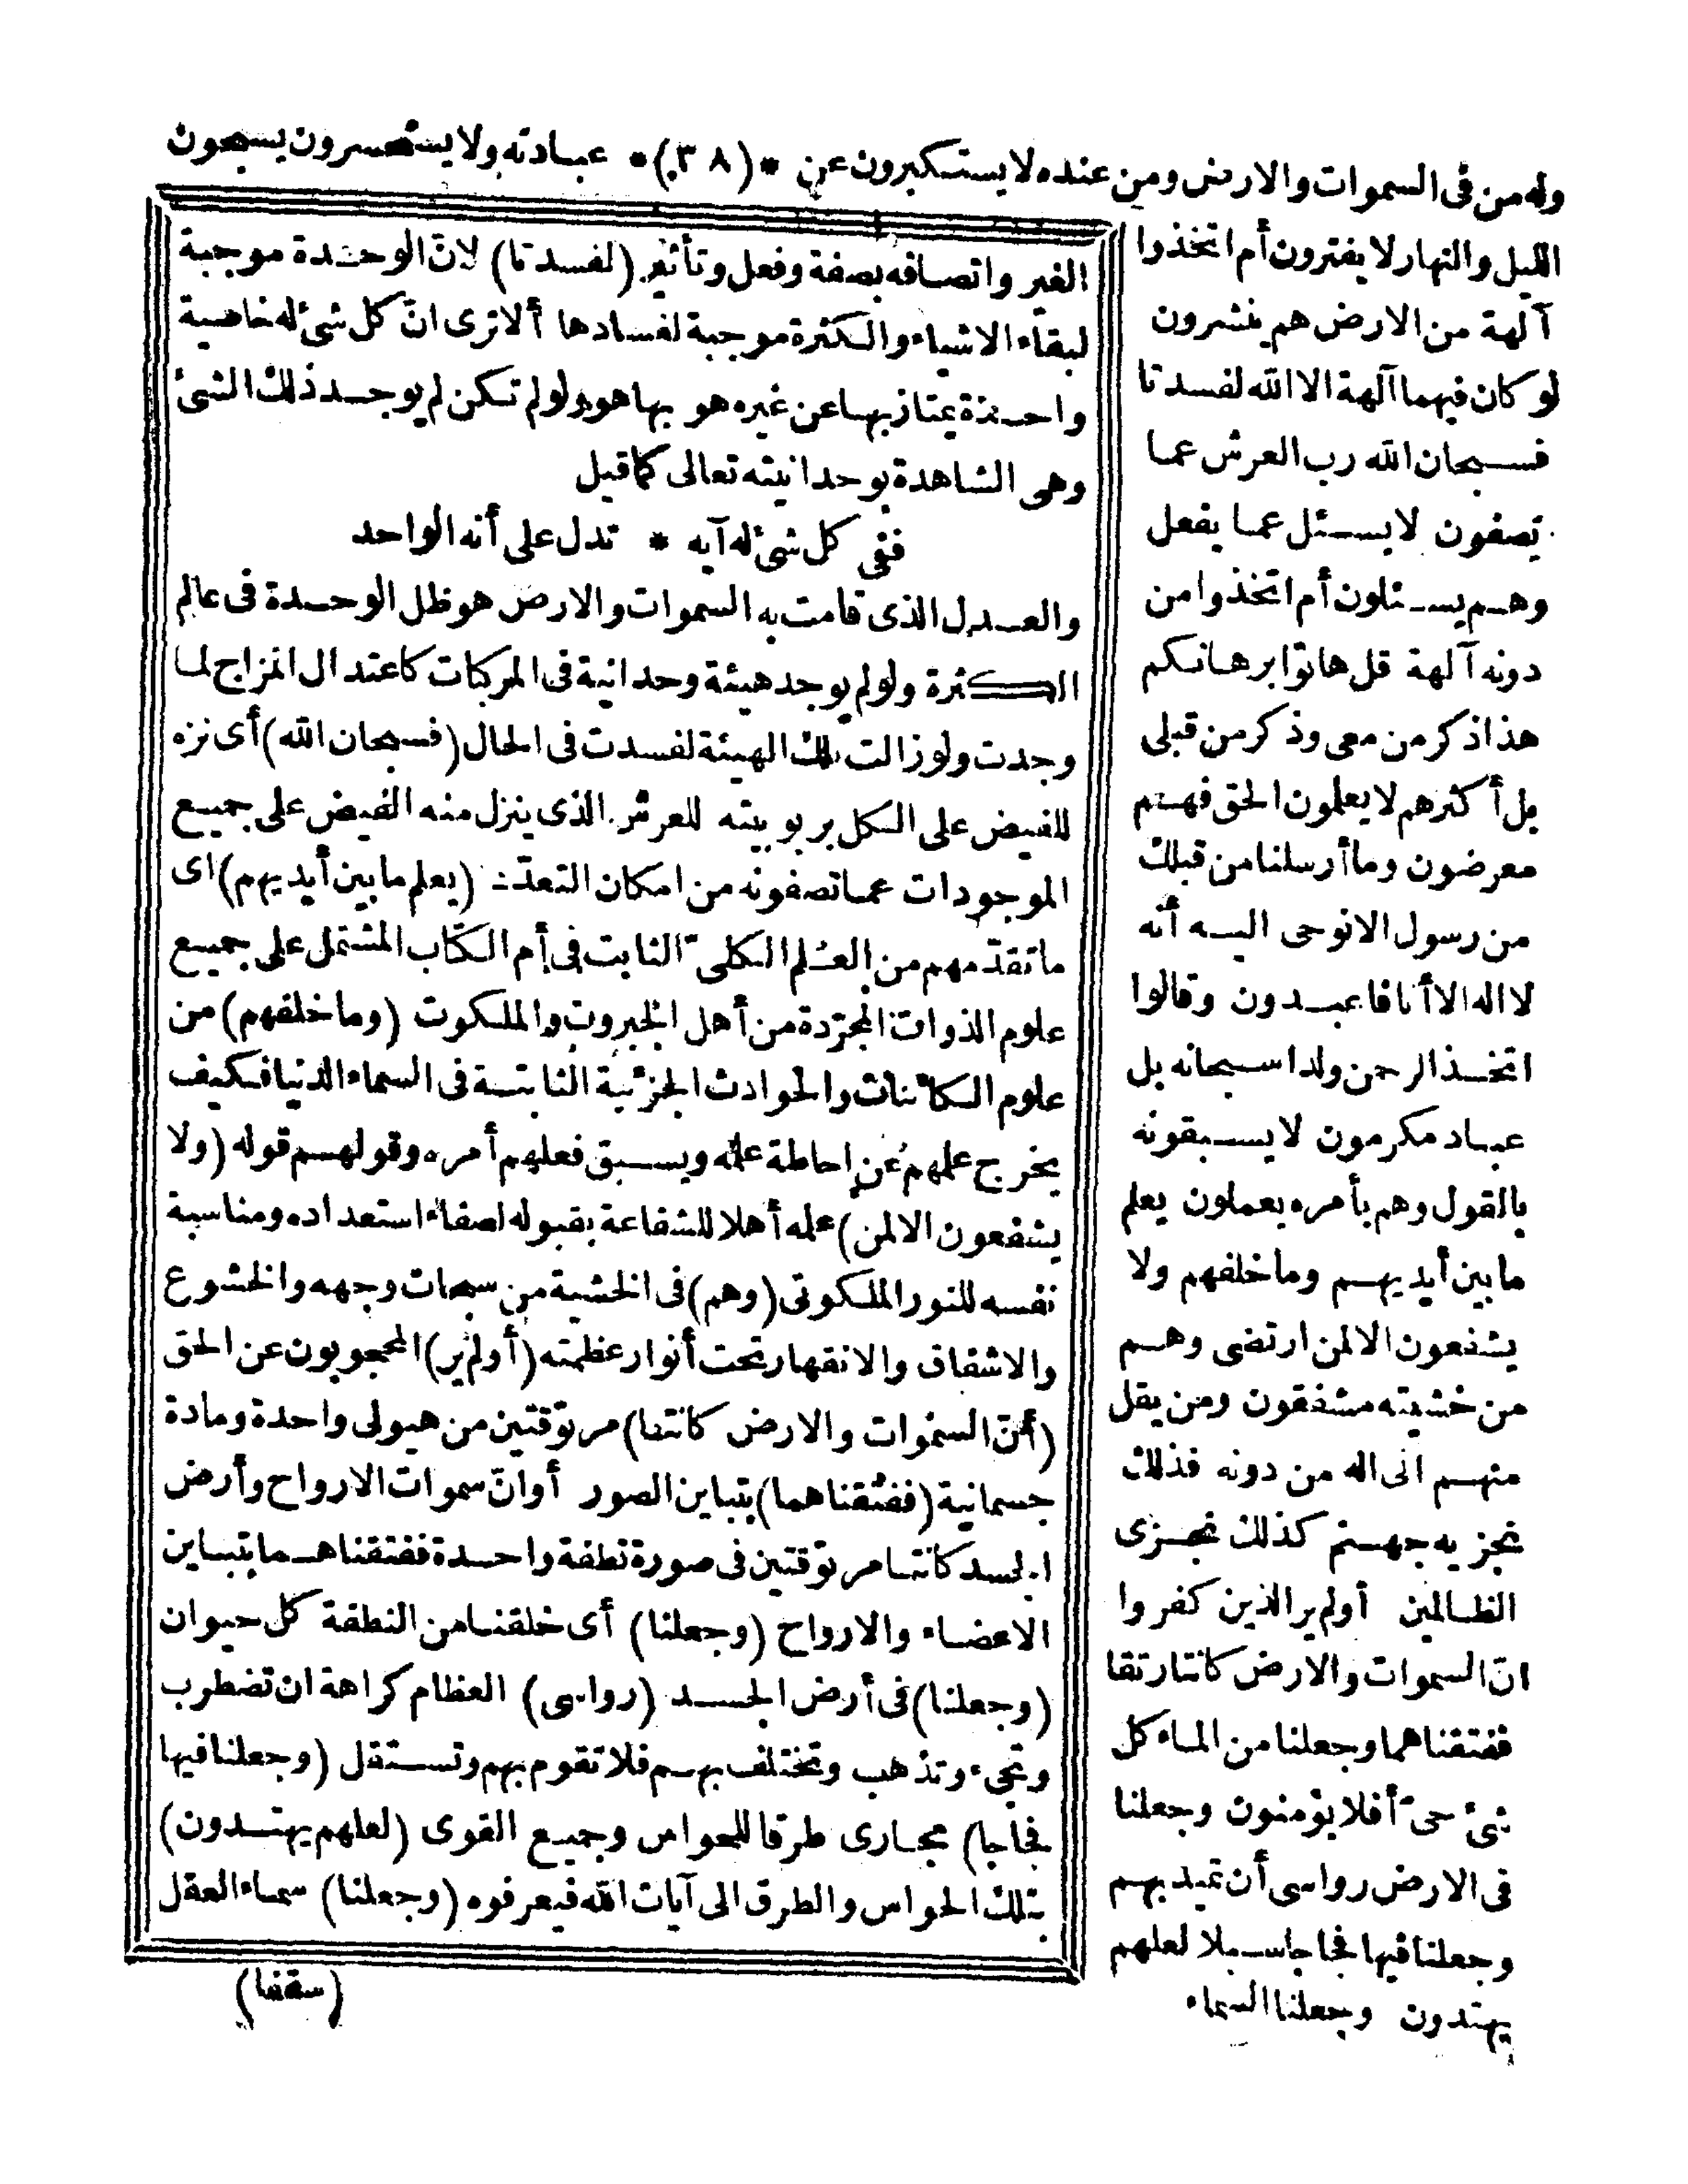 وله من فى السموات والارض ومن عنده لا يستكبرون عن *(٣٨)* عبادته ولا يستحسرون يسبحون
الليل والنهار لا يفترون أم اتخذوا
آلهة من الارض هم ينشرون
لو كان فيهما آلهة الا الله لفسدتا
فسبحان الله رب العرش عما
يصفون لا يسئل عما يفعل
وهم يسئلون أم اتخذوا من
دونه آلهة قل هاتوا برهانكم
هذا ذكر من معى وذكر من قبلى
بل أكثرهم لا يعلمون الحق فهم
معرضون وما أرسلنا من قبلك
من رسول الا نوحى اليه أنه
لا اله الا أنا فاعبدون وقالوا
اتخذ الرحمن ولدا سبحانه بل
عباد مكرمون لا يسبقونه
بالقول وهم بأمره يعملون يعلم
ما بين أيديهم وما خلفهم ولا
يشفعون الا لمن ارتضى وهم
من خشيته مشفقون ومن يقل
منهم انى اله من دونه فذلك
نجزيه جهنم كذلك نجزى
الظالمين أولم ير الذين كفروا
انّ السموات والارض كانتا رتقا
ففتقناهما وجعلنا من الماء كل
شئ حىّ أفلا يؤمنون وجعلنا
فى الارض رواسى أن تميد بهم
وجعلنا فيها فجاجا سبلا لعلهم
يهتدون وجعلنا السماء
الغير واتصافه بصفة وفعل وتأثير (لفسدتا) لانّ الوحدة موجبة
لبقاء الاشياء والكثرة موجبة لفسادها ألا ترى انّ كل شئ له خاصية
واحدة يمتاز بها عن غيره هو بها هو ولو لم تكن لم يوجد ذلك الشئ
وهى الشاهدة بوحدانيته تعالى كما قيل
ففى كل شئ له آيه * تدل على أنه الواحد
والعدل الذى قامت به السموات والارض هو ظل الوحدة فى عالم
الكثرة ولو لم يوجد هيئة وحدانية فى المركبات كاعتدال المزاج لما
وجدت ولو زالت تلك الهيئة لفسدت فى الحال (فسبحان الله) أى نزه
للفيض على الكل بربوبيته للعرش الذى ينزل منه الفيض على جميع
الموجودات عما تصفونه من امكان التعدّد (يعلم ما بين أيديهم) اى
ما تقدّمهم من العلم الكلىّ الثابت فى أم الكتاب المشتمل على جميع
علوم الذوات المجرّدة من أهل الجبروت والملكوت (وما خلفهم) من
علوم الكائنات والحوادث الجزئية الثابتة فى السماء الدنيا فكيف
يخرج علمهم عن احاطة علمه ويسبق فعلهم أمره وقولهم قوله (ولا
يشفعون الا لمن) علمه أهلا للشفاعة بقبوله لصفاء استعداده ومناسبة
نفسه للنور الملكوتى (وهم) فى الخشية من سبحات وجهه والخشوع
والاشفاق والانقهار تحت أنوار عظمته (أولم ير) المحجوبون عن الحق
(أنّ السموات والارض كانتا) مرتوقتين من هيولى واحدة ومادة
جسمانية (ففتقناهما) بتباين الصور أو انّ سموات الارواح وأرض
الجسد كانتا مرتوقتين فى صورة نطفة واحدة ففتقناهما بتباين
الاعضاء والارواح (وجعلنا) أى خلقنا من النطفة كل حيوان
(وجعلنا) فى أرض الجسد (رواسى) العظام كراهة ان تضطرب
وتجىء وتذهب وتختلف بهم فلا تقوم بهم وتستقل (وجعلنا فيها
فجاجا) مجارى طرقا للحواس وجميع القوى (لعلهم يهتدون)
بتلك الحواس والطرق الى آيات الله فيعرفوه (وجعلنا) سماء العقل
(سقفا)